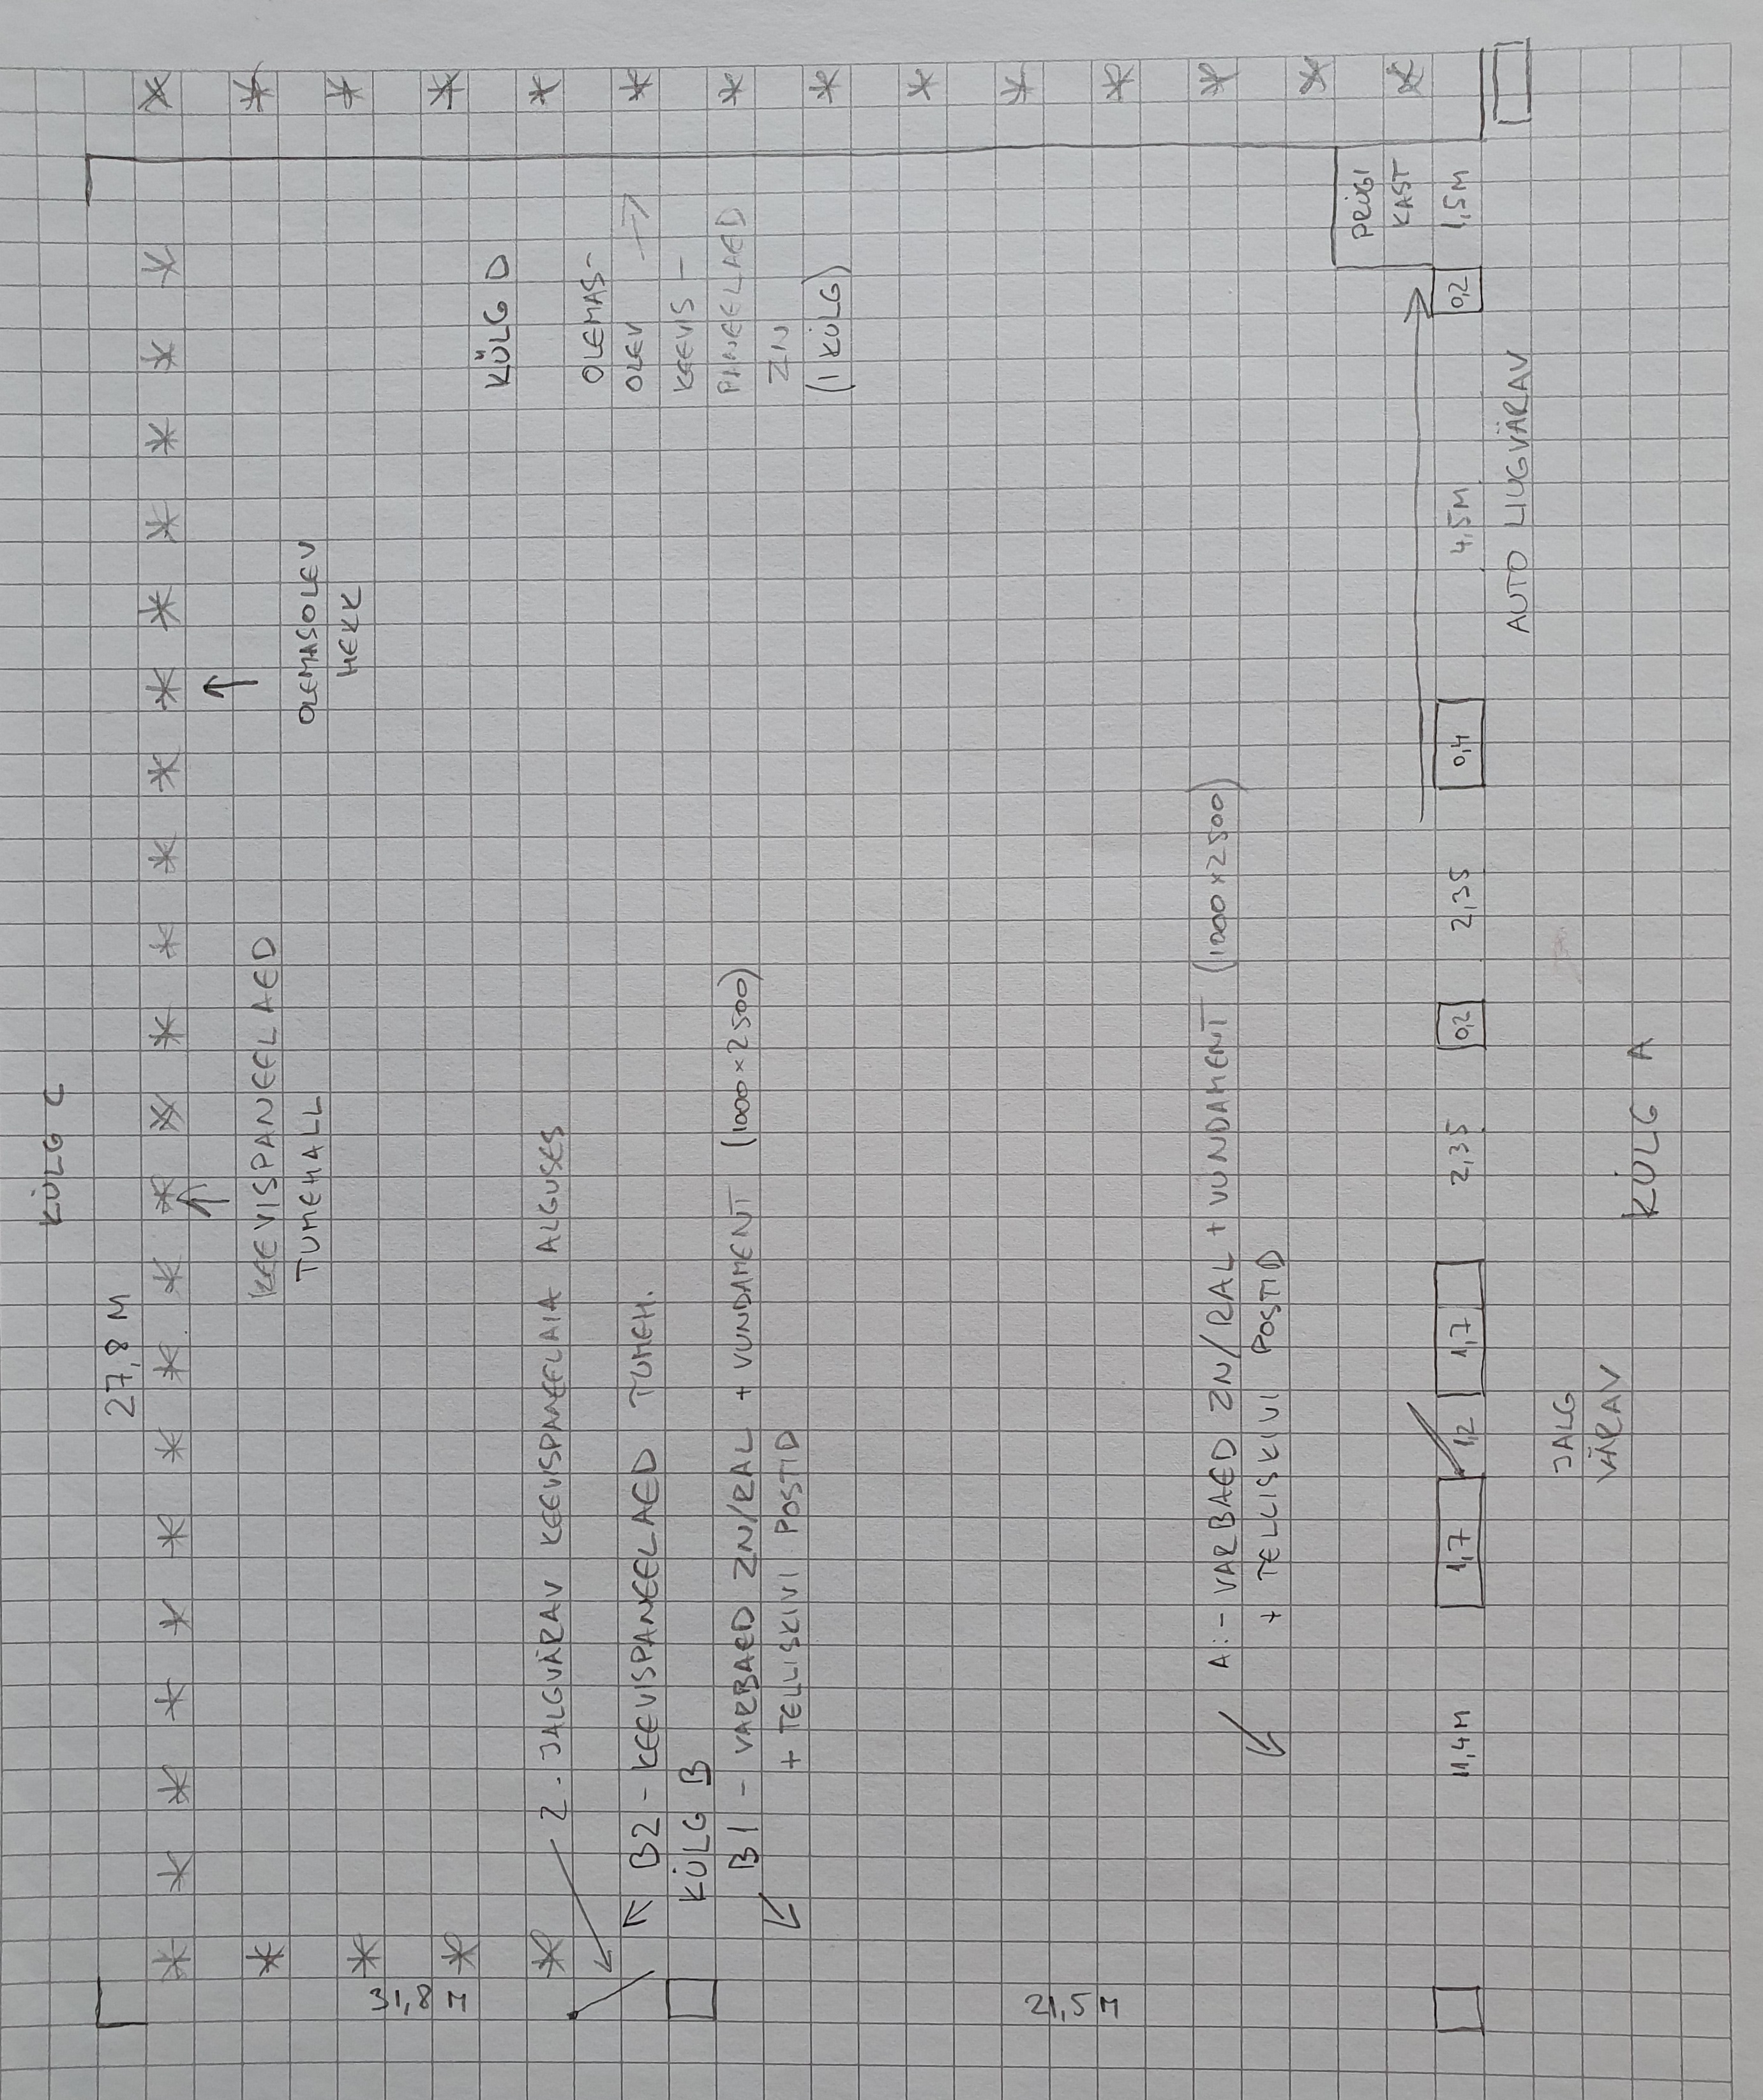 KÜLG C
27,8 M
KEEVISPANEELAED
TUMEHALL
OLEMASOLEV
HEKK
KÜLG D
OLEMAS-
OLEV
KEEVIS-
PANEELAED
ZN
(1 KÜLG)
2. JALGVÄRAV KEEVISPANEELAIA ALGUSES
B2 - KEEVISPANEELAED TUMEH.
KÜLG B
B1 - VARBAED ZN/RAL + VUNDAMENT (1000×2500)
+ TELLISKIVI POSTID
31,8 M
21,5 M
A: - VARBAED ZN/RAL + VUNDAMENT (1000×2500)
+ TELLISKIVI POSTID
PRÜGI
KAST
11,4M 1,7 1,2 1,7 2,35 0,2 2,35 0,4 4,5M 0,2 1,5M
AUTO LIUGVÄRAV
JALG
VÄRAV
KÜLG A